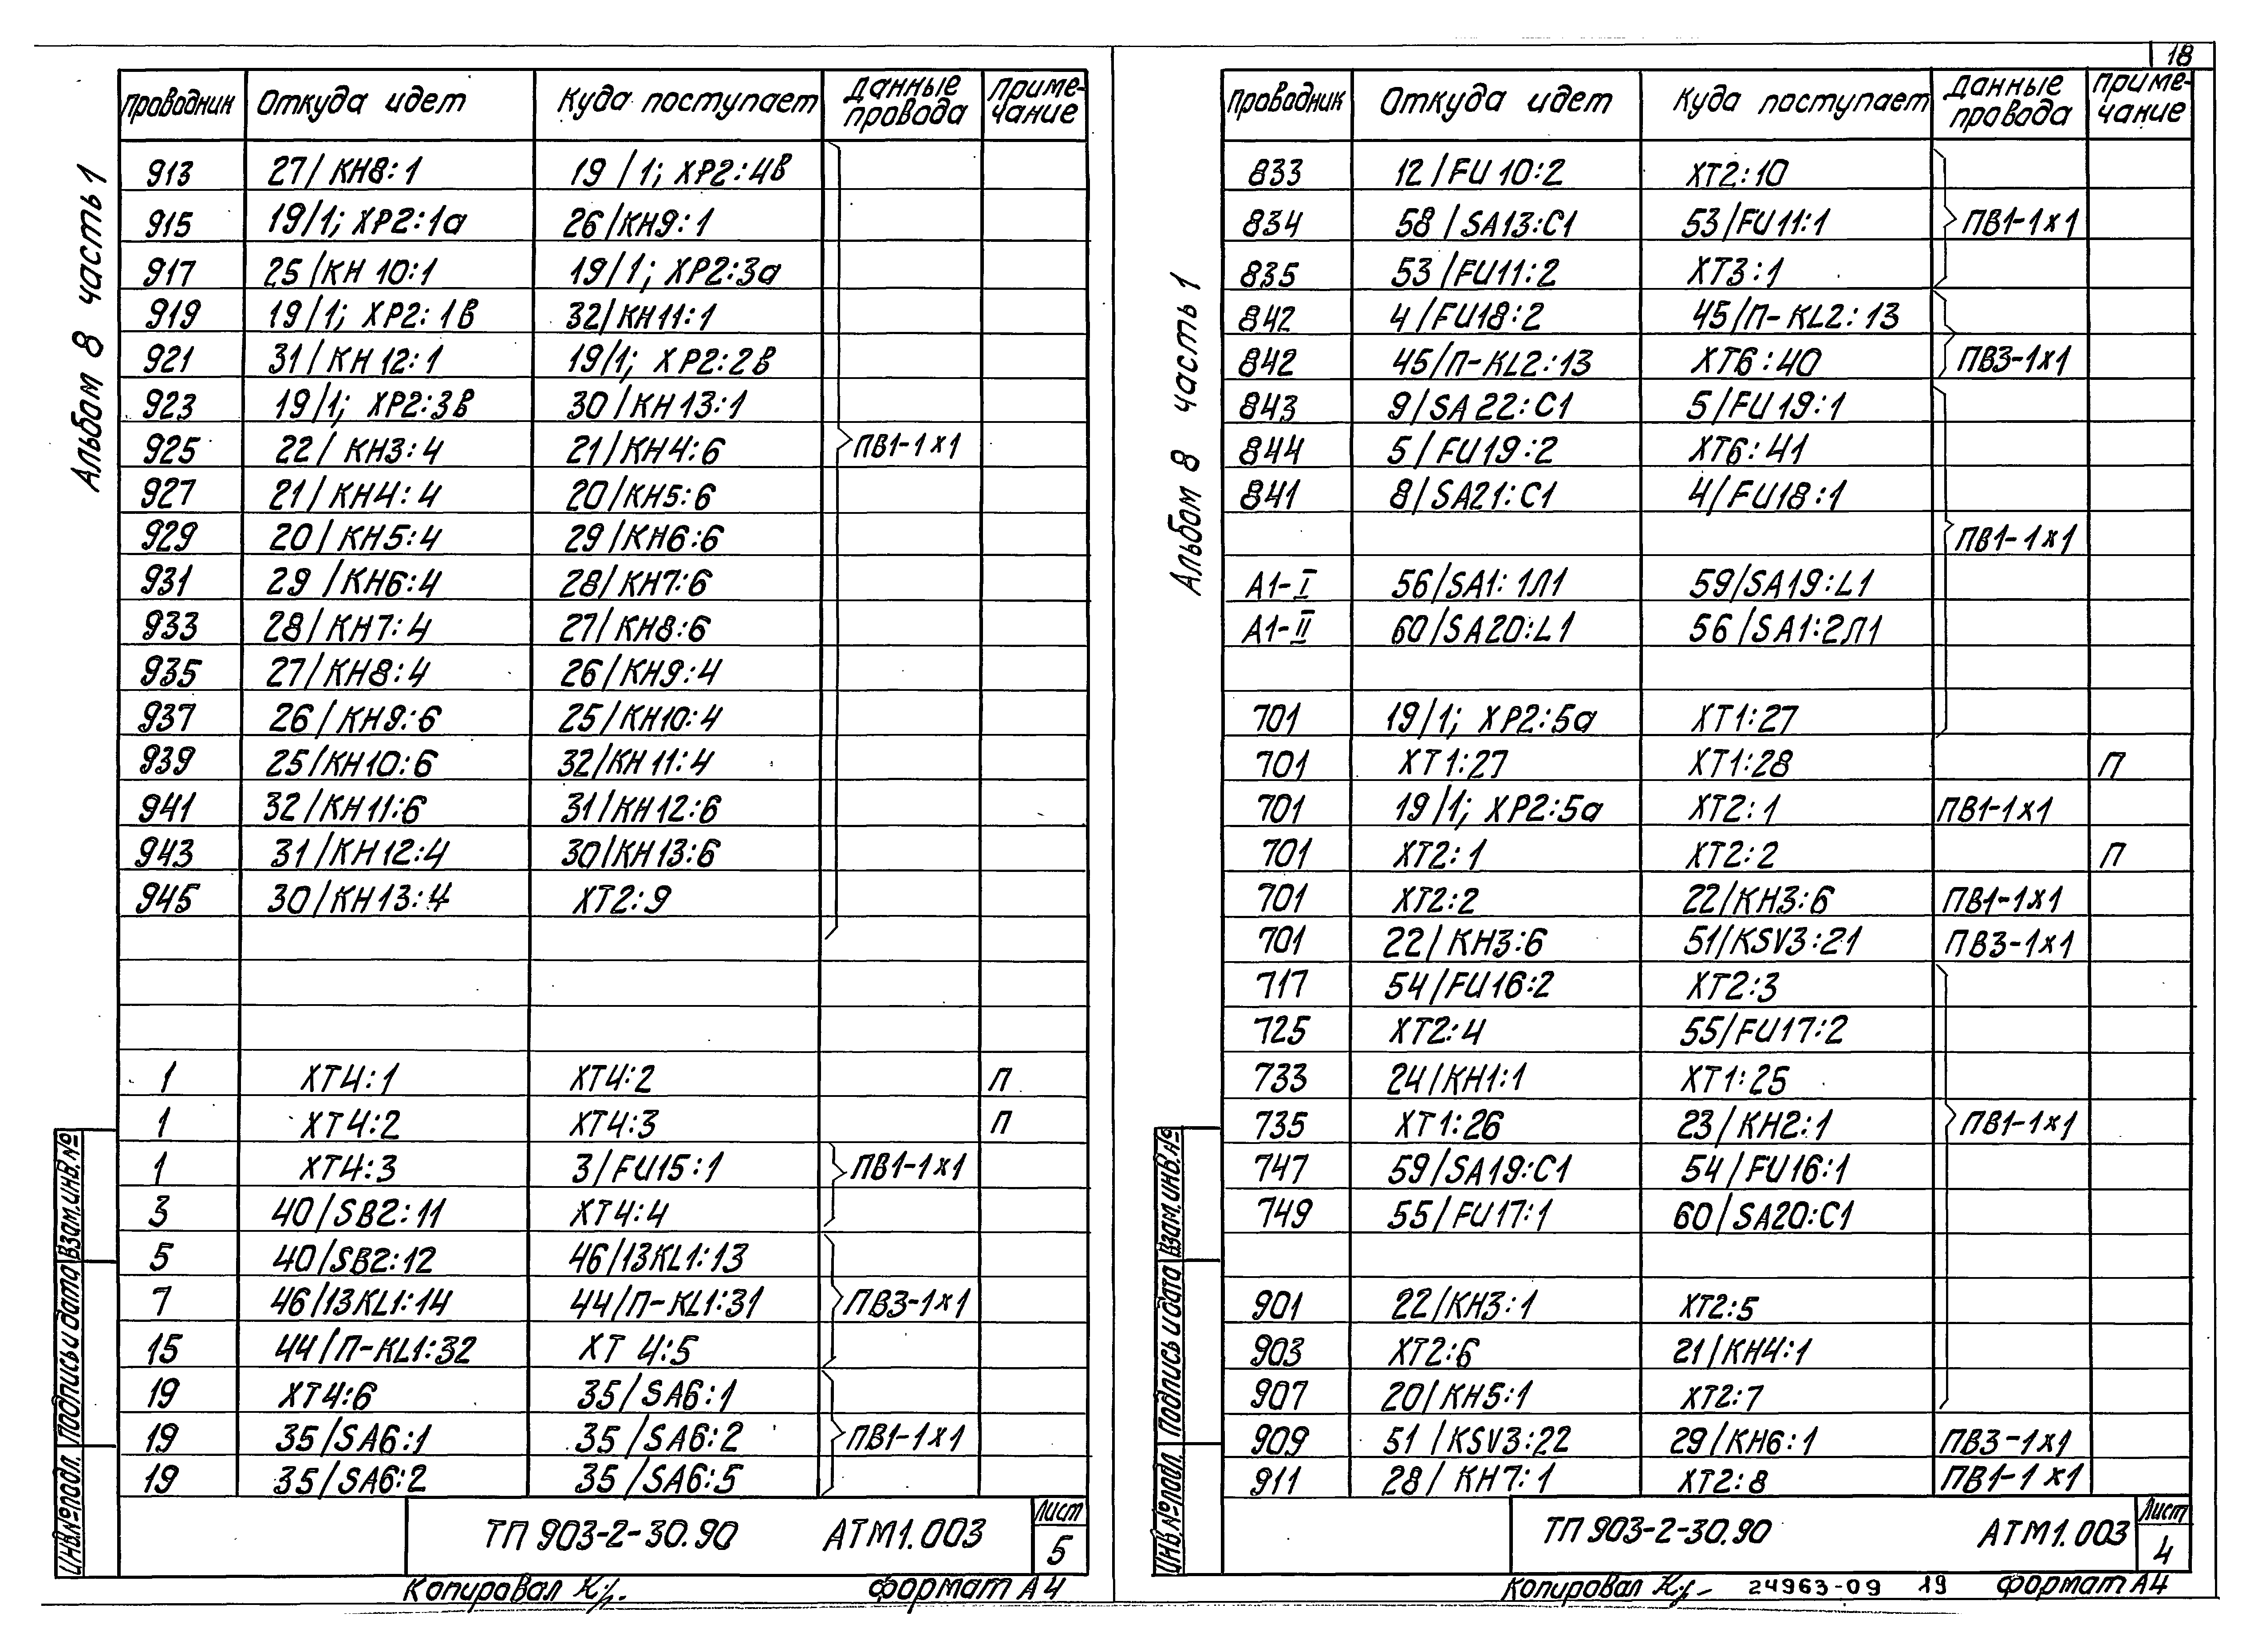 18
Альбом 8 часть 1
Проводник Откуда идет Куда поступает Данные провода Приме-чание
913 27/КН8:1 19/1; ХР2:4в
915 19/1; ХР2:1а 26/КН9:1
917 25/КН10:1 19/1; ХР2:3а
919 19/1; ХР2:1в 32/КН11:1
921 31/КН12:1 19/1; ХР2:2в
923 19/1; ХР2:3в 30/КН13:1
925 22/КН3:4 21/КН4:6 ПВ1-1х1
927 21/КН4:4 20/КН5:6
929 20/КН5:4 29/КН6:6
931 29/КН6:4 28/КН7:6
933 28/КН7:4 27/КН8:6
935 27/КН8:4 26/КН9:4
937 26/КН9:6 25/КН10:4
939 25/КН10:6 32/КН11:4
941 32/КН11:6 31/КН12:6
943 31/КН12:4 30/КН13:6
945 30/КН13:4 ХТ2:9
1 ХТ4:1 ХТ4:2 П
1 ХТ4:2 ХТ4:3 П
1 ХТ4:3 3/FU15:1 ПВ1-1х1
3 40/SB2:11 ХТ4:4
5 40/SB2:12 46/13KL1:13
7 46/13KL1:14 44/П-KL1:31 ПВ3-1х1
15 44/П-KL1:32 ХТ4:5
19 ХТ4:6 35/SA6:1
19 35/SA6:1 35/SA6:2 ПВ1-1х1
19 35/SA6:2 35/SA6:5
Взам.инв.№
Подпись и дата
Инв.№подл.
ТП 903-2-30.90 АТМ1.003 Лист 5
Копировал Формат А4
Альбом 8 часть 1
Проводник Откуда идет Куда поступает Данные провода Приме-чание
833 12/FU10:2 ХТ2:10
834 58/SA13:C1 53/FU11:1 ПВ1-1х1
835 53/FU11:2 ХТ3:1
842 4/FU18:2 45/П-KL2:13
842 45/П-KL2:13 ХТ6:40 ПВ3-1х1
843 9/SA22:C1 5/FU19:1
844 5/FU19:2 ХТ6:41
841 8/SA21:C1 4/FU18:1
ПВ1-1х1
А1-I 56/SA1:1Л1 59/SA19:L1
А1-II 60/SA20:L1 56/SA1:2Л1
701 19/1; ХР2:5а ХТ1:27
701 ХТ1:27 ХТ1:28 П
701 19/1; ХР2:5а ХТ2:1 ПВ1-1х1
701 ХТ2:1 ХТ2:2 П
701 ХТ2:2 22/КН3:6 ПВ1-1х1
701 22/КН3:6 51/KSV3:21 ПВ3-1х1
717 54/FU16:2 ХТ2:3
725 ХТ2:4 55/FU17:2
733 24/КН1:1 ХТ1:25
735 ХТ1:26 23/КН2:1 ПВ1-1х1
747 59/SA19:C1 54/FU16:1
749 55/FU17:1 60/SA20:C1
901 22/КН3:1 ХТ2:5
903 ХТ2:6 21/КН4:1
907 20/КН5:1 ХТ2:7
909 51/KSV3:22 29/КН6:1 ПВ3-1х1
911 28/КН7:1 ХТ2:8 ПВ1-1х1
Взам.инв.№
Подпись и дата
Инв.№подл.
ТП 903-2-30.90 АТМ1.003 Лист 4
Копировал 24963-09 19 Формат А4